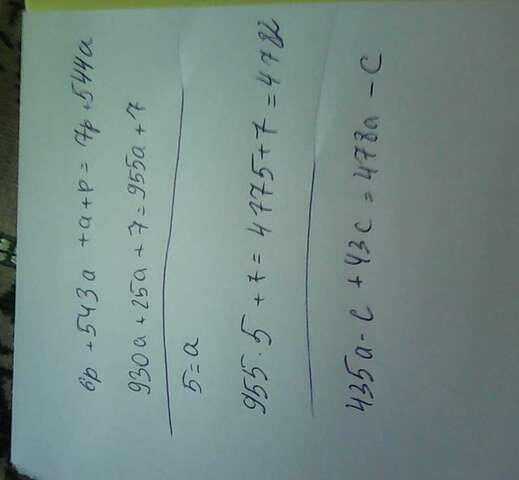 6p + 543a + a + p = 7p + 544a
930a + 25a + 7 = 955a + 7
5 = a
955 · 5 + 7 = 4775 + 7 = 4782
435a - c + 43c = 478a - c